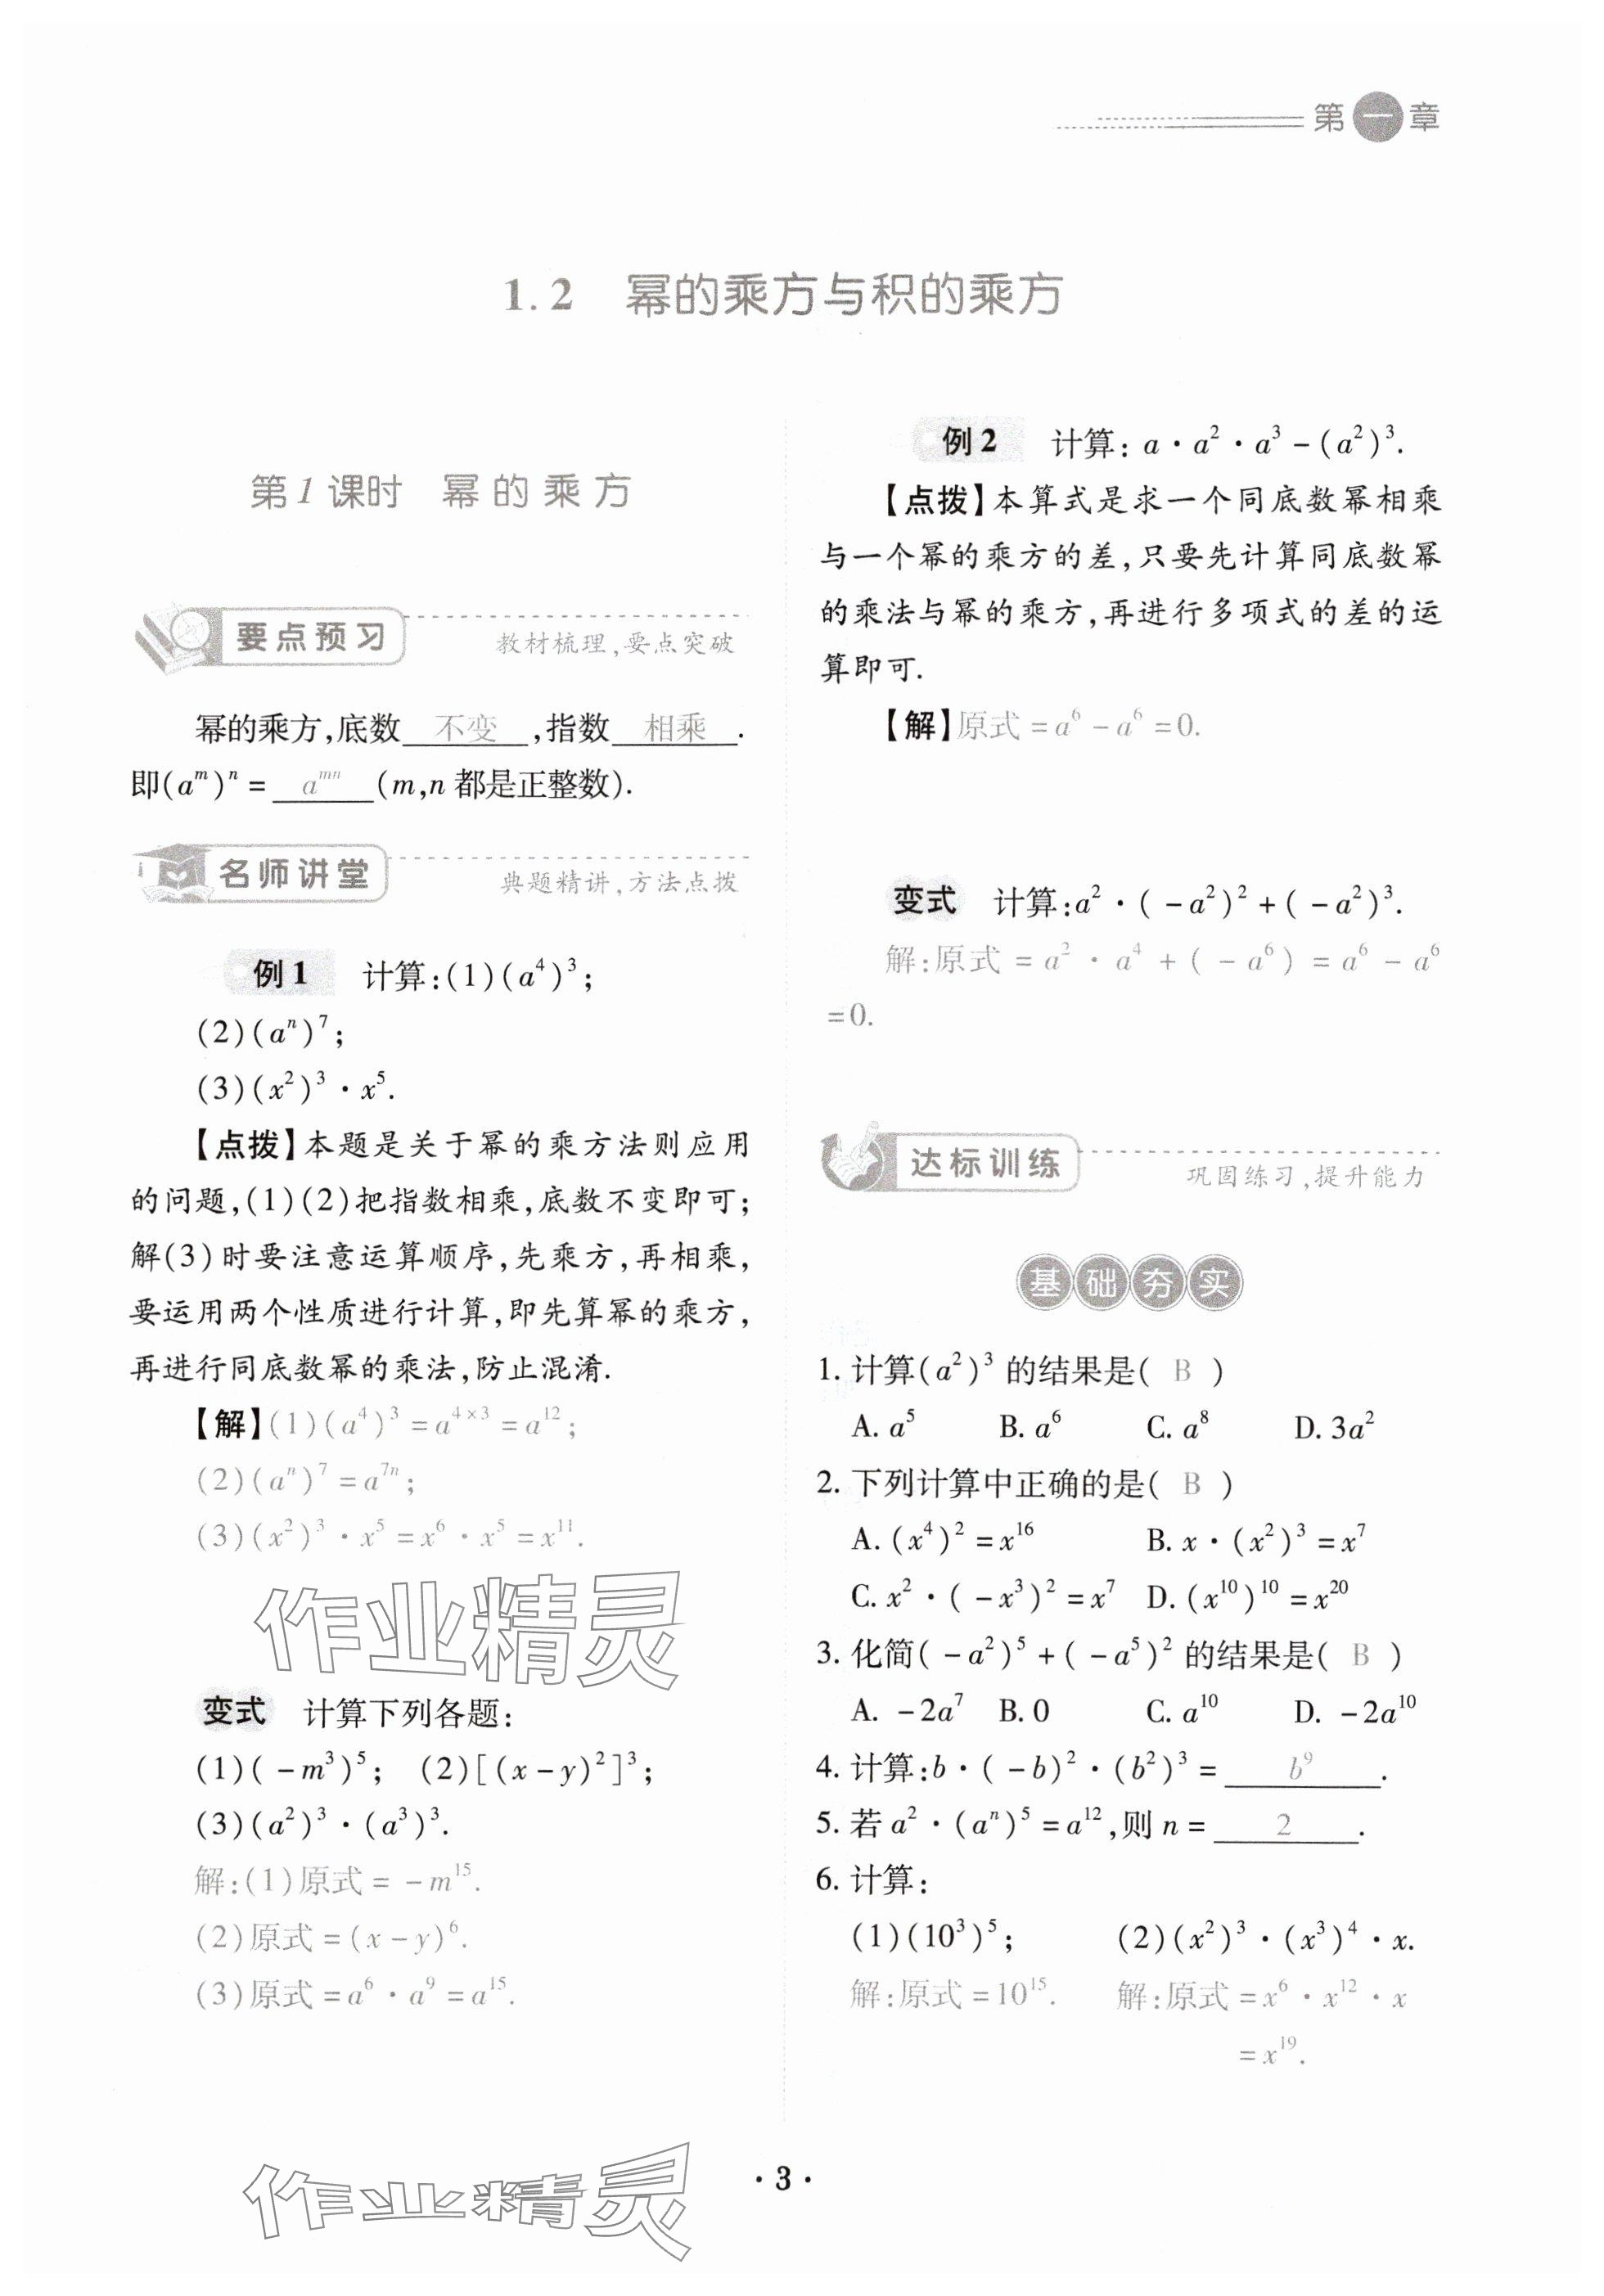 第一章
1.2 幂的乘方与积的乘方
第1课时 幂的乘方
要点预习
教材梳理,要点突破
幂的乘方,底数 不变 ,指数 相乘 .
即(a^m)^n = a^{mn} (m,n 都是正整数).
名师讲堂
典题精讲,方法点拨
例1 计算:(1)(a^4)^3;
(2)(a^n)^7;
(3)(x^2)^3·x^5.
【点拨】本题是关于幂的乘方法则应用
的问题,(1)(2)把指数相乘,底数不变即可;
解(3)时要注意运算顺序,先乘方,再相乘,
要运用两个性质进行计算,即先算幂的乘方,
再进行同底数幂的乘法,防止混淆.
【解】(1)(a^4)^3 = a^{4×3} = a^{12};
(2)(a^n)^7 = a^{7n};
(3)(x^2)^3·x^5 = x^6·x^5 = x^{11}.
作业精灵
变式 计算下列各题:
(1)(-m^3)^5; (2)[(x-y)^2]^3;
(3)(a^2)^3·(a^3)^3.
解:(1)原式 = -m^{15}.
(2)原式 = (x-y)^6.
(3)原式 = a^6·a^9 = a^{15}.
例2 计算: a·a^2·a^3-(a^2)^3.
【点拨】本算式是求一个同底数幂相乘
与一个幂的乘方的差,只要先计算同底数幂
的乘法与幂的乘方,再进行多项式的差的运
算即可.
【解】原式 = a^6 - a^6 = 0.
变式 计算:a^2·(-a^2)^2+(-a^2)^3.
解:原式 = a^2·a^4+(-a^6) = a^6-a^6
=0.
达标训练
巩固练习,提升能力
基础夯实
1. 计算(a^2)^3 的结果是( B )
A. a^5 B. a^6 C. a^8 D. 3a^2
2. 下列计算中正确的是( B )
A. (x^4)^2 = x^{16} B. x·(x^2)^3 = x^7
C. x^2·(-x^3)^2 = x^7 D. (x^{10})^{10} = x^{20}
3. 化简(-a^2)^5+(-a^5)^2 的结果是( B )
A. -2a^7 B. 0 C. a^{10} D. -2a^{10}
4. 计算:b·(-b)^2·(b^2)^3 = b^9 .
5. 若 a^2·(a^n)^5 = a^{12},则 n = 2 .
6. 计算:
(1)(10^3)^5; (2)(x^2)^3·(x^3)^4·x.
解:原式 = 10^{15}. 解:原式 = x^6·x^{12}·x
= x^{19}.
·3·
作业精灵